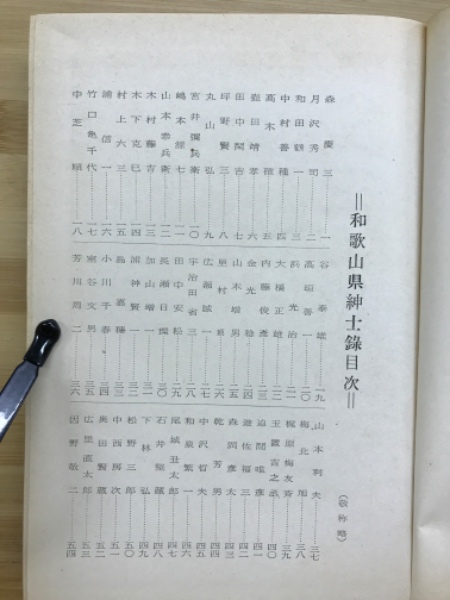 ＝和歌山県紳士錄目次＝
（敬称略）
森慶三 一
月沢秀司 二
和田鶴一 三
中村善種 四
高木 五
田靖孝 六
田中閑吉 七
坪野賢三 八
丸山弘 九
宮井彌兵衛 一〇
嶋本七 一一
山本泰兵衛 一二
木村藤吉 一三
木下克巳 一四
村上六三 一五
浦信一 一六
竹口亀千代 一七
中芝順 一八
谷泰雄 一九
高垣善一 二〇
浜光治 二一
大橋正雄 二二
内藤俊彥 二三
金光 二四
山本男 二五
里村 二六
広瀬誠一 二七
宇治田省三 二八
田中安松 二九
長瀬日 三〇
加山増一 三一
浦神賢一 三二
島嘉 三三
小川千春 三四
室谷文男 三五
芳川周二 三六
山本利夫 三七
梅北旭 三八
梶原梅友斎 三九
玉置吉之丞 四〇
迫間唯彥 四一
遊佐福三 四二
森岡彦太 四三
乾芳男 四四
中沢哲夫 四五
和泉繁一 四六
尾城丑太郎 四七
石井榮蔵 四八
下林弘 四九
松野三郎 五〇
中西房次 五一
奥田賢蔵 五二
広里直太郎 五三
野敬二 五四